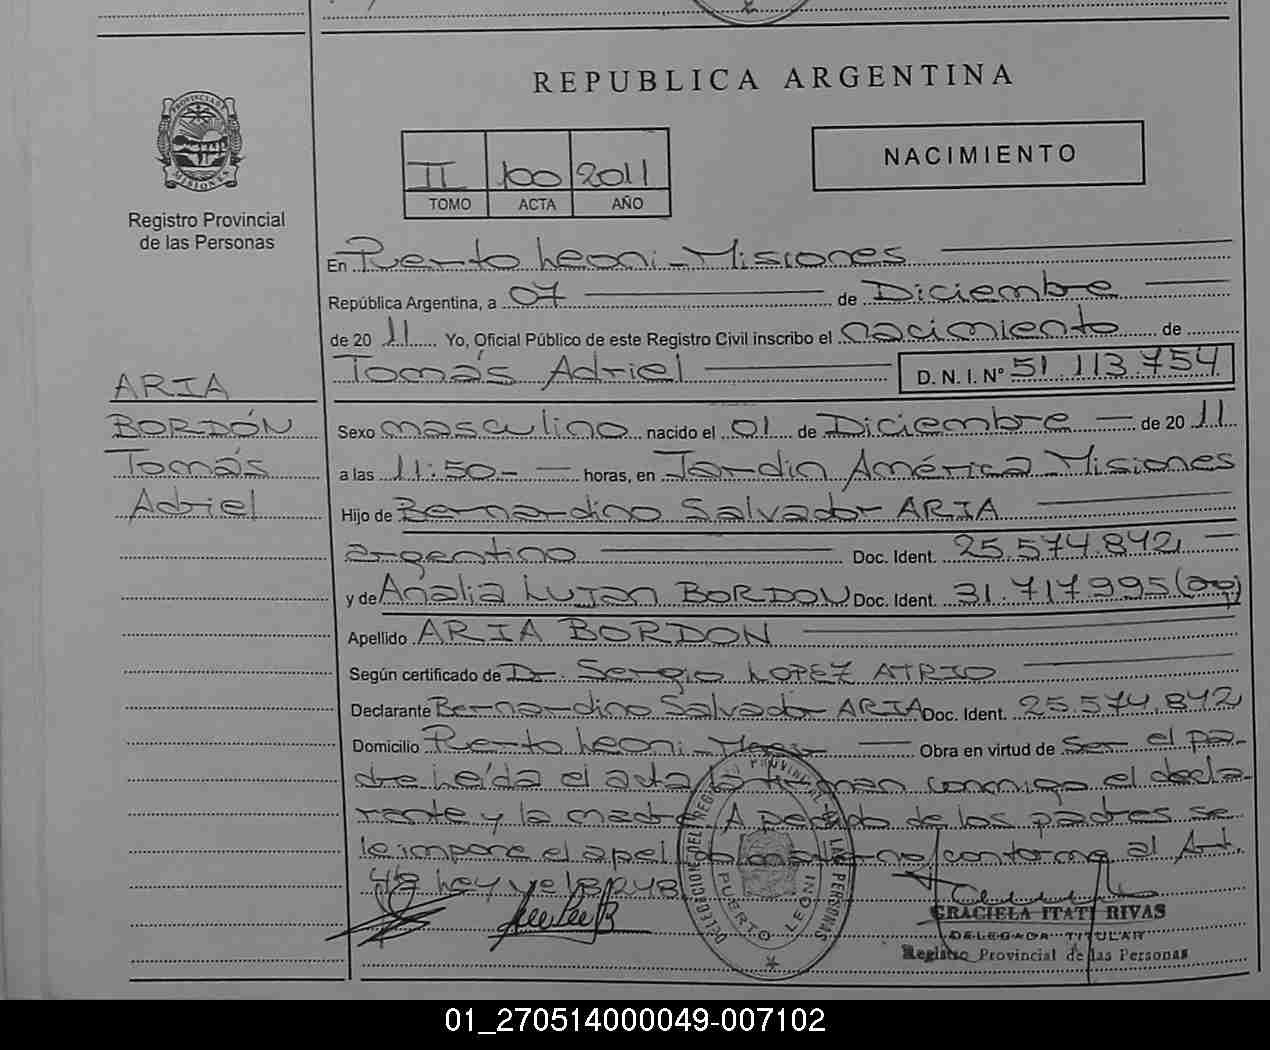 REPUBLICA ARGENTINA
PROVINCIA DE
MISIONES
Registro Provincial
de las Personas
II 100 2011
TOMO ACTA AÑO
NACIMIENTO
En Puerto Leoni - Misiones
República Argentina, a 07 de Diciembre
de 2011 Yo, Oficial Público de este Registro Civil inscribo el nacimiento de
Tomás Adriel D. N. I. Nº 51.113.754
ARIA
BORDÓN
Tomás
Adriel
Sexo masculino nacido el 01 de Diciembre de 2011
a las 11:50 horas, en Jardin América Misiones
Hijo de Bernardino Salvador ARIA
argentino Doc. Ident. 25.574.842
y de Analia Lujan BORDON Doc. Ident. 31.717.995 (arg)
Apellido ARIA BORDON
Según certificado de Dr. Sergio LOPEZ ATRIO
Declarante Bernardino Salvador ARIA Doc. Ident. 25.574.842
Domicilio Puerto Leoni - Obra en virtud de ser el pa-
dre leída el acta la firman conmigo el decla-
rante y la madre. A pedido de los padres se
le impone el apellido materno conforme al Art.
4º ley 18.248
DELEGACION DEL REGISTRO PROVINCIAL DE LAS PERSONAS
PUERTO LEONI
GRACIELA ITATI RIVAS
DELEGADA TITULAR
Registro Provincial de las Personas
01_270514000049-007102